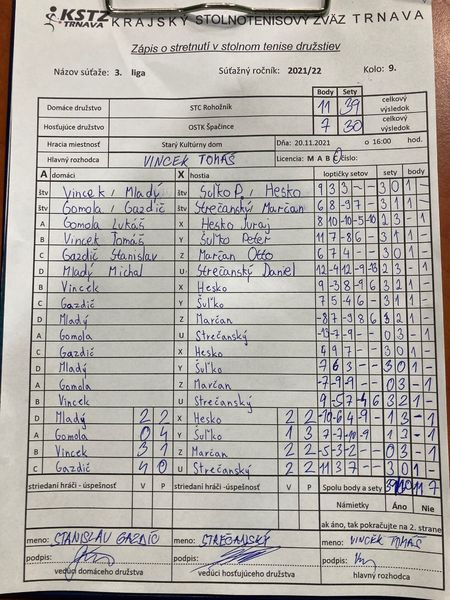 KSTZ TRNAVA KRAJSKÝ STOLNOTENISOVÝ ZVÄZ TRNAVA
Zápis o stretnutí v stolnom tenise družstiev
Názov súťaže: 3. liga Súťažný ročník: 2021/22 Kolo: 9.
Body Sety
Domáce družstvo STC Rohožník 11 39 celkový výsledok
Hosťujúce družstvo OSTK Špačince 7 30 celkový výsledok
Hracia miestnosť Starý Kultúrny dom Dňa: 20.11.2021 o 16:00 hod.
Hlavný rozhodca VINCEK TOMÁŠ Licencia: M A B C číslo:
A domáci X hostia loptičky setov sety body
štv Vincek, Mladý štv Šuľko P., Hesko 9 3 3 - - 3 0 1 -
štv Gomola, Gazdič štv Strečanský, Marčan 6 8 -9 7 - 3 1 1 -
A Gomola Lukáš X Hesko Juraj 8 10 -10 -5 -10 2 3 - 1
B Vincek Tomáš Y Šuľko Peter 11 7 -8 6 - 3 1 1 -
C Gazdič Stanislav Z Marčan Otto 6 7 4 - - 3 0 1 -
D Mladý Michal U Strečanský Daniel 12 -9 12 -9 -13 2 3 - 1
B Vincek X Hesko 9 -3 8 -9 6 3 2 1 -
C Gazdič Y Šuľko 7 5 -4 6 - 3 1 1 -
D Mladý Z Marčan -8 7 -9 8 6 3 2 1 -
A Gomola U Strečanský -13 -7 -9 - - 0 3 - 1
C Gazdič X Hesko 4 9 7 - - 3 0 1 -
D Mladý Y Šuľko 7 6 3 - - 3 0 1 -
A Gomola Z Marčan -7 -9 -9 - - 0 3 - 1
B Vincek U Strečanský 9 -5 7 -4 6 3 2 1 -
D Mladý 2 2 X Hesko 2 2 -10 -6 4 -9 - 1 3 - 1
A Gomola 0 4 Y Šuľko 1 3 7 -7 -10 -9 - 1 3 - 1
B Vincek 3 1 Z Marčan 2 2 -5 -3 -2 - - 0 3 - 1
C Gazdič 4 0 U Strečanský 2 2 11 3 7 - - 3 0 1 -
striedaní hráči - úspešnosť V P striedaní hráči -úspešnosť V P Spolu body a sety 39 30 11 7
Námietky Áno Nie
ak áno, tak pokračujte na 2. strane
meno: STANISLAV GAZDIČ meno: STREČANSKÝ meno: VINCEK TOMÁŠ
podpis: podpis: podpis:
vedúci domáceho družstva vedúci hosťujúceho družstva hlavný rozhodca